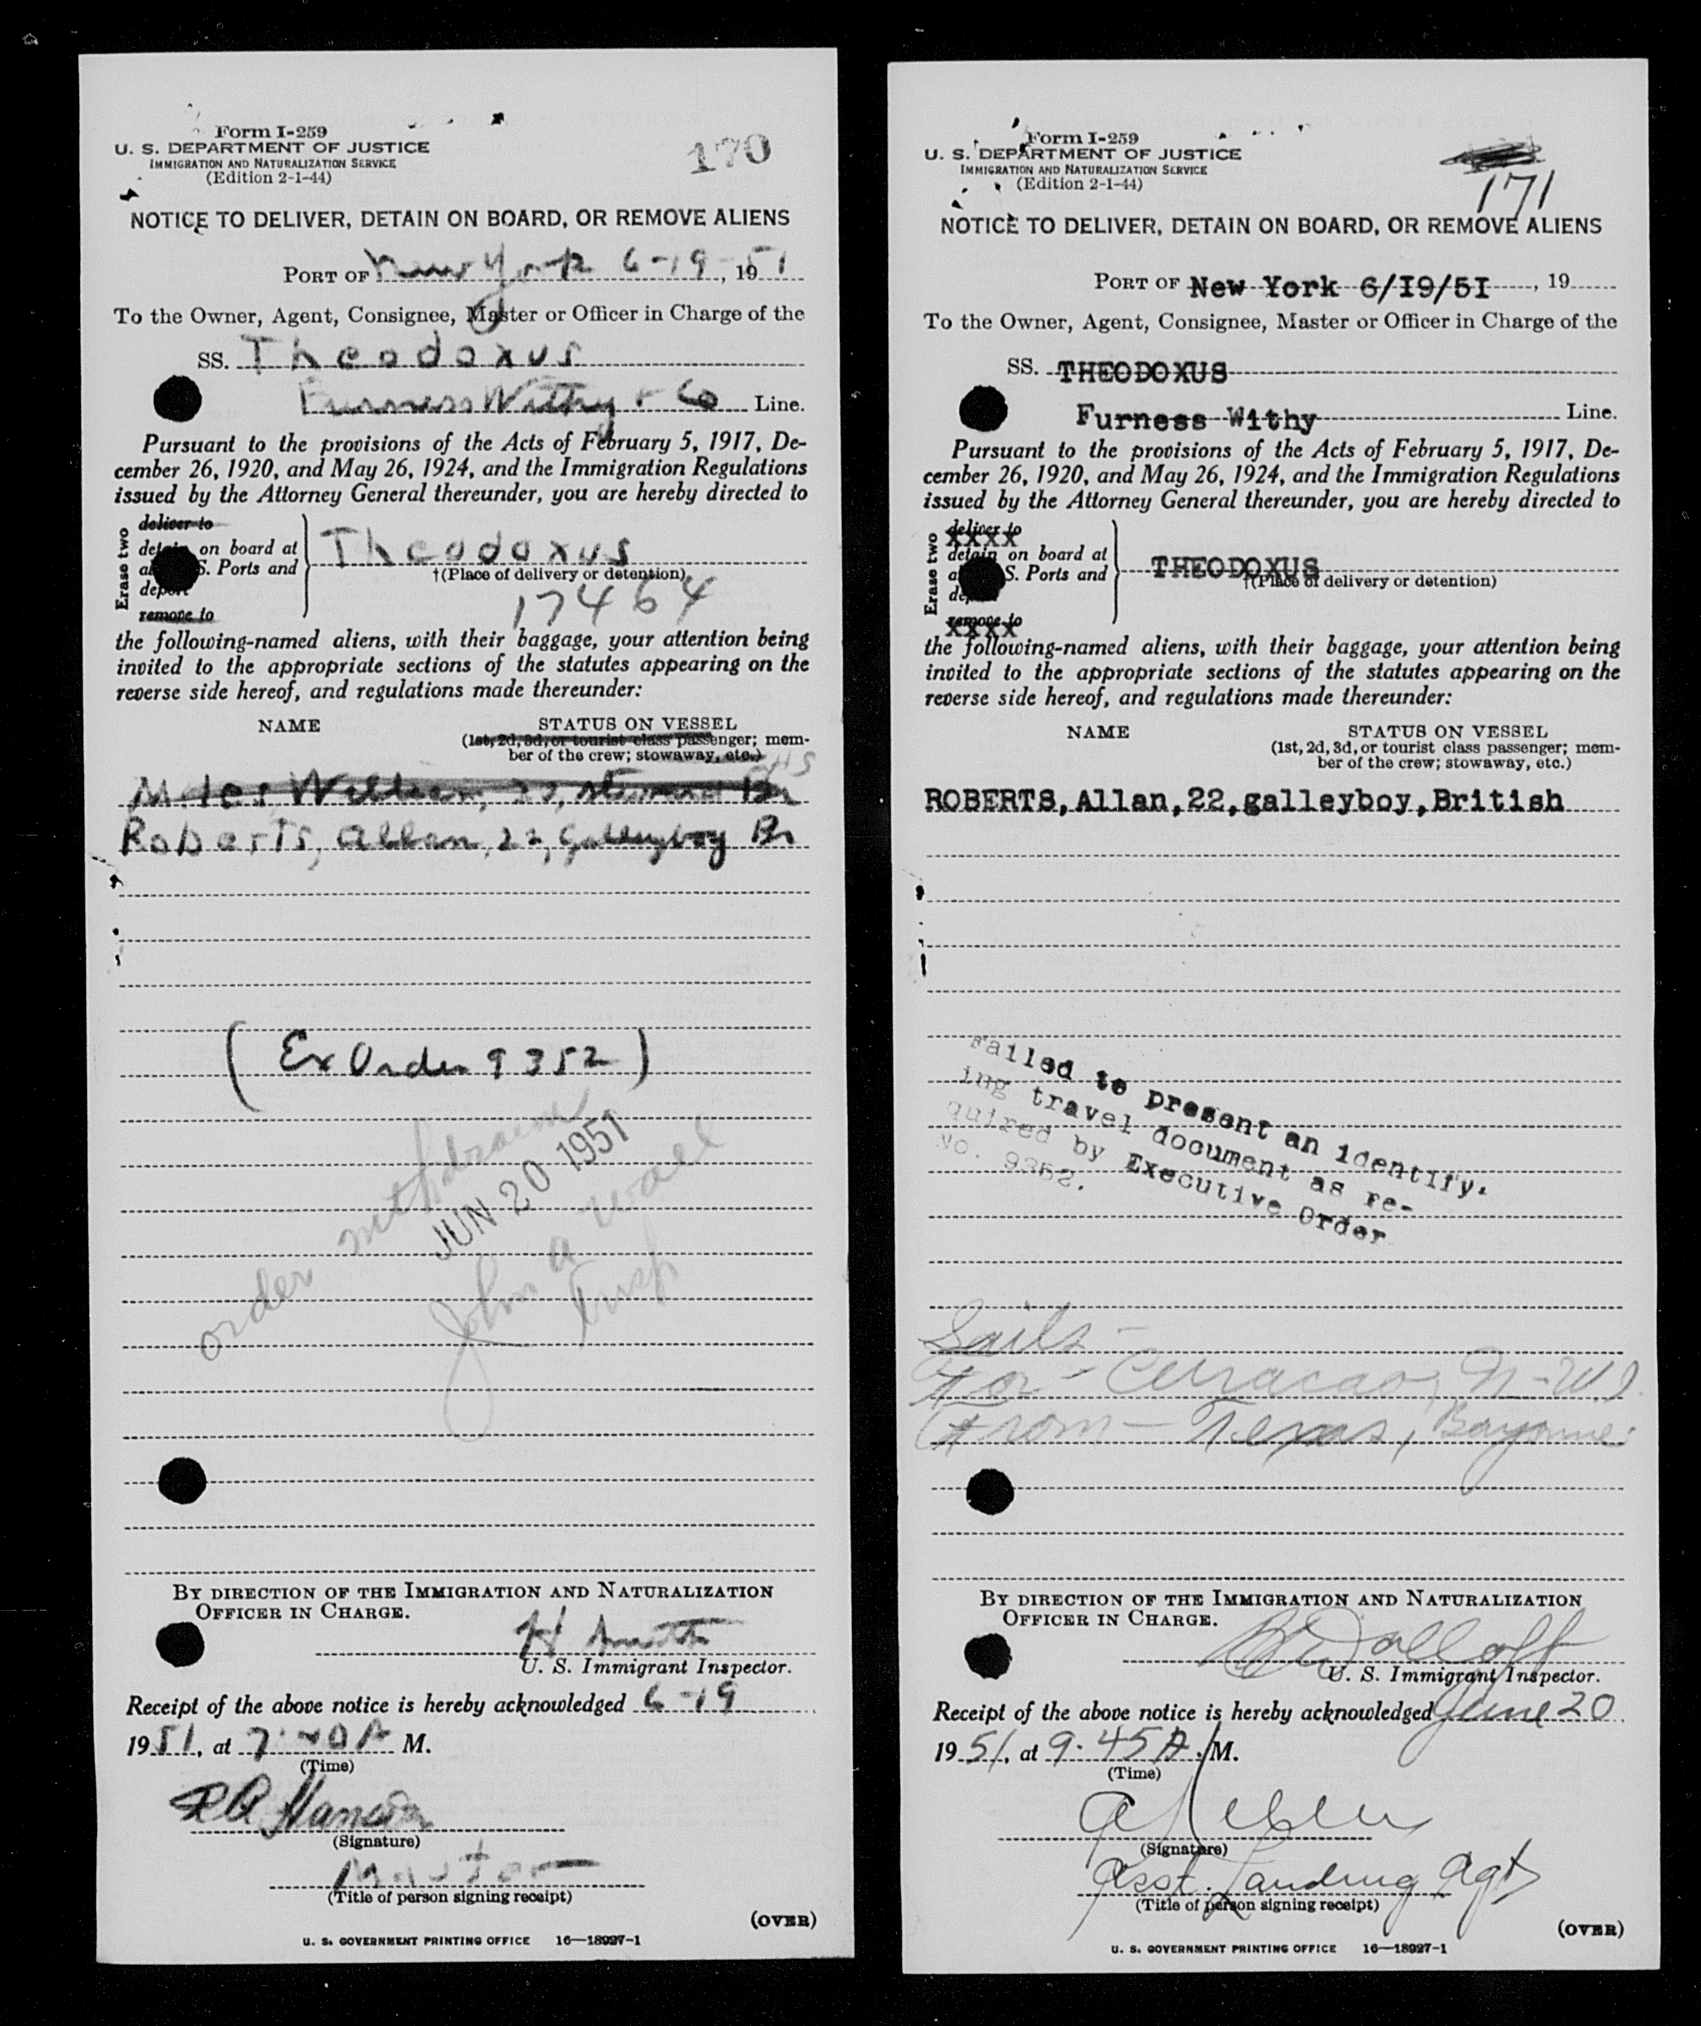 Form I-259
U. S. DEPARTMENT OF JUSTICE
IMMIGRATION AND NATURALIZATION SERVICE
(Edition 2-1-44)
170
NOTICE TO DELIVER, DETAIN ON BOARD, OR REMOVE ALIENS
PORT OF New York 6-19-51, 1951
To the Owner, Agent, Consignee, Master or Officer in Charge of the
SS. Theodoxus
Furness Withy + Co Line.
Pursuant to the provisions of the Acts of February 5, 1917, De-
cember 26, 1920, and May 26, 1924, and the Immigration Regulations
issued by the Attorney General thereunder, you are hereby directed to
Erase two
deliver to
on board at
S. Ports and
remove to
Theodoxus
†(Place of delivery or detention)
17464
the following-named aliens, with their baggage, your attention being
invited to the appropriate sections of the statutes appearing on the
reverse side hereof, and regulations made thereunder:
NAME STATUS ON VESSEL
(1st, 2d, 3d, or tourist class passenger; mem-
ber of the crew; stowaway, etc.)
William, Br
Roberts, Allan, 22, Galleyboy Br
(Ex Order 9352)
order withdrawn
JUN 20 1951
John a Wall
Insp
BY DIRECTION OF THE IMMIGRATION AND NATURALIZATION
OFFICER IN CHARGE.
H Smith
U. S. Immigrant Inspector.
Receipt of the above notice is hereby acknowledged 6-19
1951, at A M.
(Time)
(Signature)
Master
(Title of person signing receipt)
(OVER)
U. S. GOVERNMENT PRINTING OFFICE 16—18927-1
Form I-259
U. S. DEPARTMENT OF JUSTICE
IMMIGRATION AND NATURALIZATION SERVICE
(Edition 2-1-44)
171
NOTICE TO DELIVER, DETAIN ON BOARD, OR REMOVE ALIENS
PORT OF New York 6/I9/5I, 19
To the Owner, Agent, Consignee, Master or Officer in Charge of the
SS. THEODOXUS
Furness Withy Line.
Pursuant to the provisions of the Acts of February 5, 1917, De-
cember 26, 1920, and May 26, 1924, and the Immigration Regulations
issued by the Attorney General thereunder, you are hereby directed to
Erase two
deliver to
xxxx
detain on board at
S. Ports and
remove to
xxxx
THEODOXUS
†(Place of delivery or detention)
the following-named aliens, with their baggage, your attention being
invited to the appropriate sections of the statutes appearing on the
reverse side hereof, and regulations made thereunder:
NAME STATUS ON VESSEL
(1st, 2d, 3d, or tourist class passenger; mem-
ber of the crew; stowaway, etc.)
ROBERTS, Allan, 22, galleyboy, British
Failed to present an identify-
ing travel document as re-
quired by Executive Order
No. 9352.
Sails-
For - Curracao, N-W I.
From - Texas, Bayonne
BY DIRECTION OF THE IMMIGRATION AND NATURALIZATION
OFFICER IN CHARGE.
U. S. Immigrant Inspector.
Receipt of the above notice is hereby acknowledged June 20
1951, at 9.45 A. M.
(Time)
(Signature)
Asst. Landing Agt
(Title of person signing receipt)
(OVER)
U. S. GOVERNMENT PRINTING OFFICE 16—18927-1